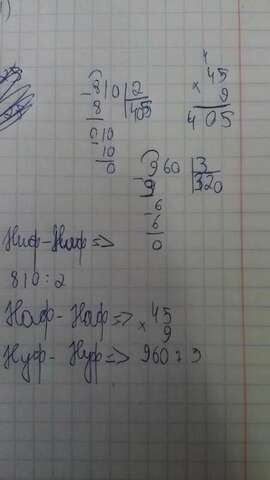 1)
-810|2
8 405
010
-10
0
4
45
×9
405
-960|3
9 320
-6
6
0
Ниф-Ниф=>
810:2
Наф-Наф=> ×45
9
Нуф-Нуф=> 960:3